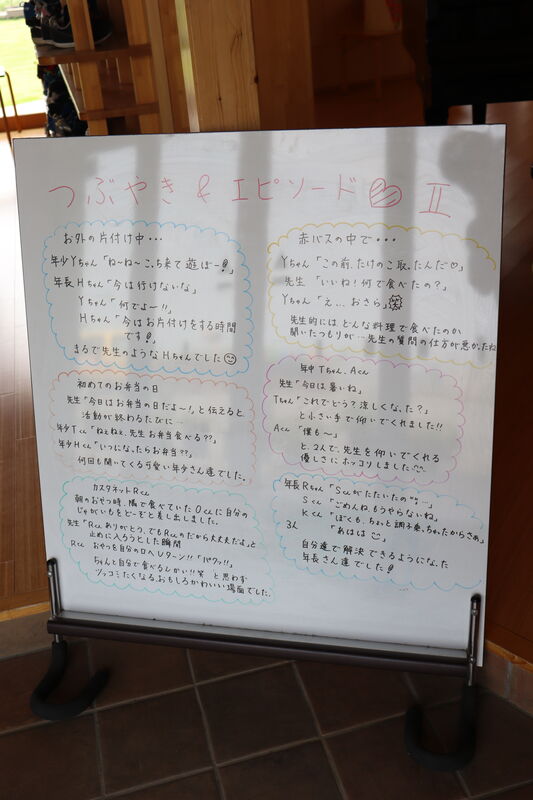 つぶやき & エピソード♡ Ⅱ
お外の片付け中・・・
年少Yちゃん「ね〜ね〜こっち来て遊ぼー!」
年長Hちゃん「今は行けないな」
Yちゃん「何でよー!!」
Hちゃん「今はお片付けをする時間
です!」
まるで先生のようなHちゃんでした
初めてのお弁当の日
先生「今日はお弁当の日だよ〜!」と伝えると
活動が終わるたびに…
年少Tくん「ねぇねぇ、先生お弁当食べる??」
年少Hくん「いつになったらお弁当??」
何回も聞いてくる可愛い年少さん達でした。
カスタネットRくん
朝のおやつ時、隣で食べていたOくんに自分の
じゃがいもをどーぞと差し出しました。
先生「Rくんありがとう、でもRくんのだから大丈夫だよ」と
止めに入ろうとした瞬間
Rくん おやつを自分の口へUターン!!「パクッ!!」
ちゃんと自分で食べるんかい!!笑 と思わず
ツッコミたくなるおもしろかわいい場面でした。
赤バスの中で・・・
Yちゃん「この前、たけのこ取ったんだ♡」
先生「いいね!何で食べたの?」
Yちゃん「え…おさら」
先生的にはどんな料理で食べたのか
聞いたつもりが…先生の質問の仕方が悪かったね
年中Tちゃん、Aくん
先生「今日は暑いね」
Tちゃん「これでどう?涼しくなった?」
と小さい手で仰いでくれました!!
Aくん「僕も〜」
と、2人で、先生を仰いでくれる
優しさにホッコリしました
年長Rちゃん「Sくんがたたいたの…」
Sくん「ごめんね、もうやらないね」
Kくん「ぼくも、ちょっと調子乗っちゃったからさぁ」
3人「あはは」
自分達で解決できるようになった
年長さん達でした!